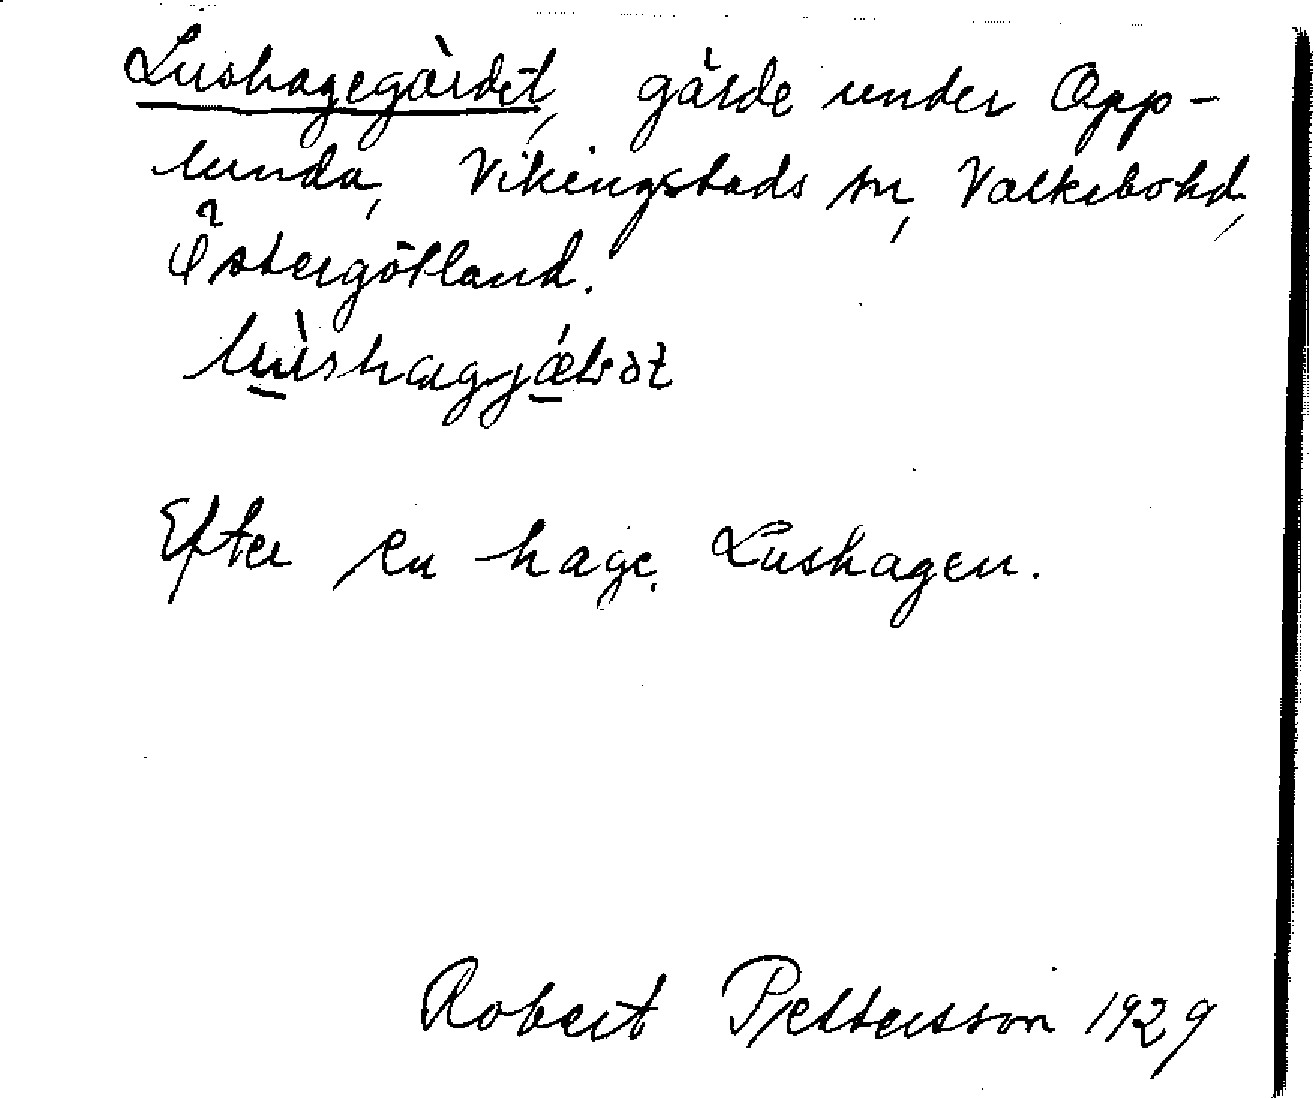 Lushagegärdet, gärde under Opp-
lunda, Vikingstads sn, Valkebo hd,
Östergötland.
Efter en hage, Lushagen.
Robert Pettersson 1929